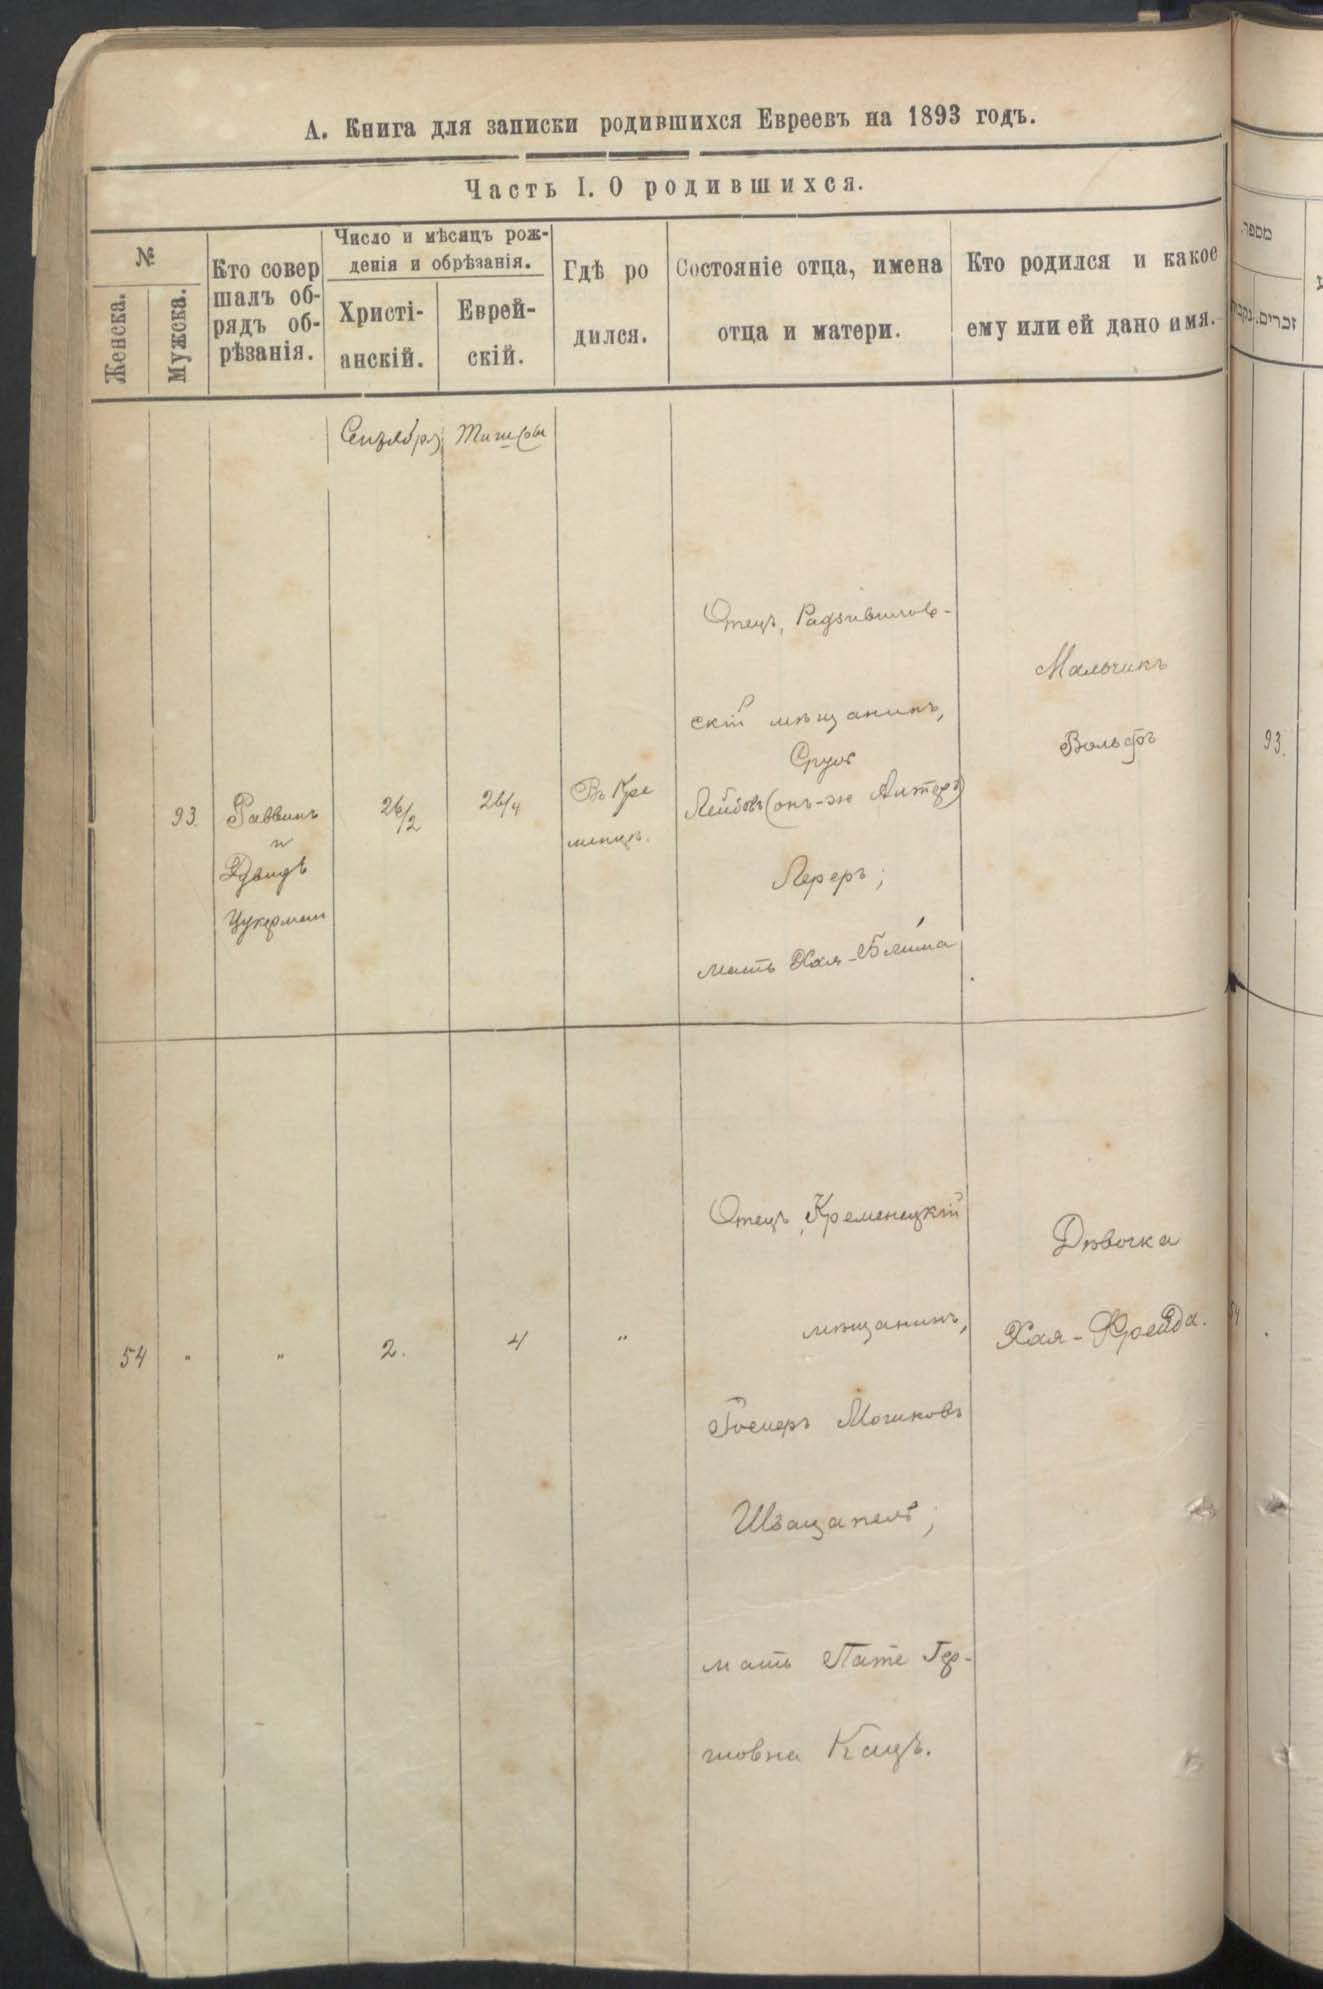 А. Книга для записки родившихся Евреевъ на 1893 годъ.
Часть I. О родившихся.
№
Женска.
Мужска.
Кто совер
шалъ об-
рядъ об-
рѣзанія.
Число и мѣсяцъ рож-
денія и обрѣзанія.
Христі-
анскій.
Еврей-
скій.
Гдѣ ро
дился.
Состояніе отца, имена
отца и матери.
Кто родился и какое
ему или ей дано имя.
מספר.
זכרים.
Сентября
Тишри
93.
Раввинъ
и
Цукерман
26/2
26/4
Въ Кре
менцѣ.
Отецъ, Радзивилов-
скій мѣщанинъ,
Сруль
Лейбовъ (онъ-же Алтеръ)
Лереръ;
мать Хая-Блима
Мальчикъ
Вольфъ
93.
54
"
"
2.
4
"
Отецъ, Кременецкій
мѣщанинъ,
Мошковъ
мать Пате Гер-
шовна Кацъ.
Дѣвочка
Хая-Фрейда.